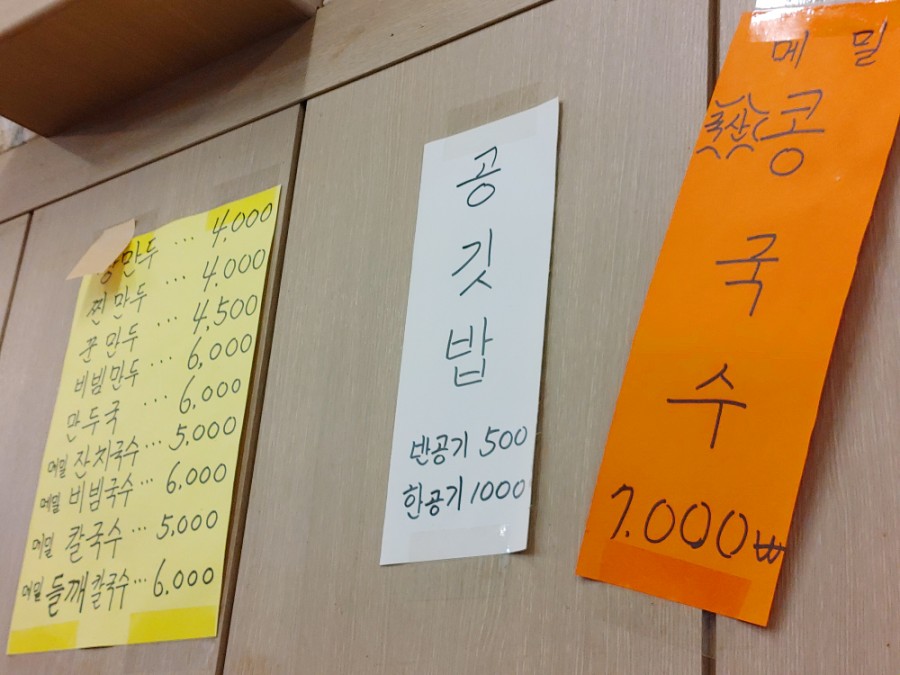 만두 ... 4.000
찐만두 ... 4.000
꾼만두 ... 4,500
비빔만두 ... 6,000
만두국 ... 6.000
메밀 잔치국수 ... 5.000
메밀 비빔국수 ... 6.000
메밀 칼국수 ... 5,000
메밀 들깨칼국수 ... 6.000
공
깃
밥
반공기 500
한공기 1000
메밀
국산 콩
국
수
7.000₩